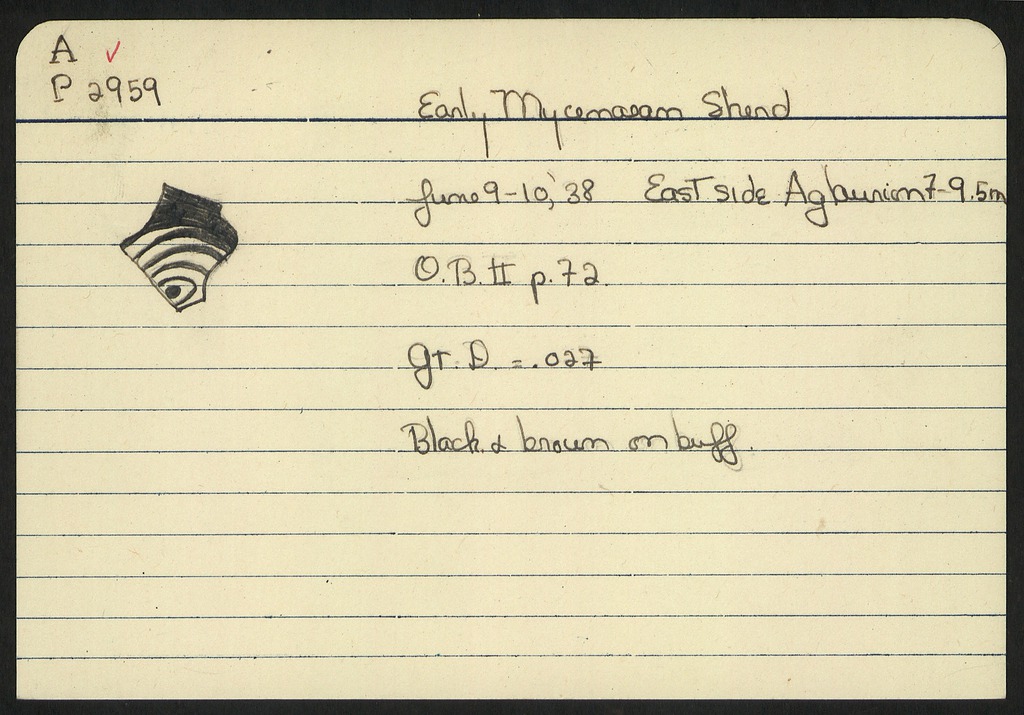 A ✓
P 2959
Early Mycenaean Sherd
June 9-10, '38 East side Aglaurion 7-9.5m
O.B. II p.72.
Gr. D. = .027
Black & brown on buff.